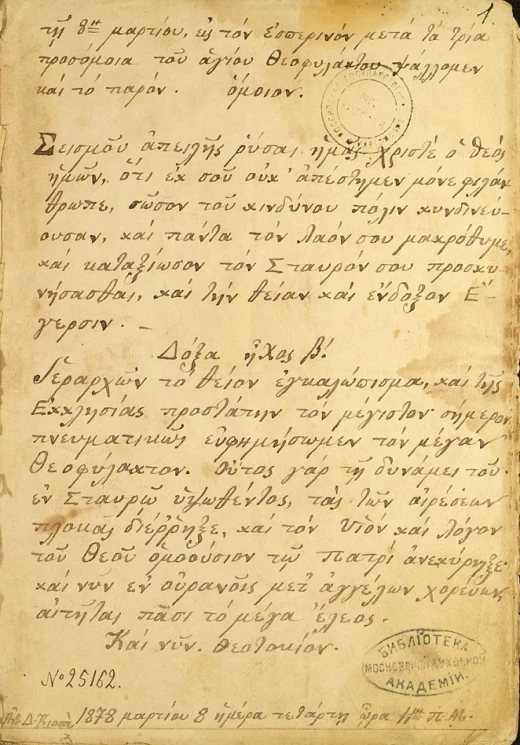 1.
τῇ 8ῃ μαρτίου, εἰς τόν ἑσπερινόν μετά τά τρία
προσόμοια τοῦ ἁγίου Θεοφυλάκτου ψάλλομεν
καί τό παρόν. ὅμοιον.
Σεισμοῦ ἀπειλῆς ῥῦσαι ἡμᾶς Χριστέ ὁ θεός
ἡμῶν, ὅτι ἐκ σοῦ οὐκ ἀπέστημεν μόνε φιλάν
θρωπε, σῶσον τοῦ κινδύνου πόλιν κυνδινεύ
ουσαν, καί πάντα τόν λαόν σου μακρόθυμε,
καί καταξίωσον τόν Σταυρόν σου προσκυ
νήσασθαι, καί τήν θείαν καί ἔνδοξον Ἔ
γερσιν. _
Δόξα ἦχος β'.
Ἱεραρχῶν τό θεῖον ἐγκαλώπισμα, καί τῆς
Ἐκκλησίας προστάτην τόν μέγιστον σήμερον
πνευματικῶς εὐφημήσωμεν τόν μέγαν
Θεοφύλακτον. Οὗτος γάρ τῇ δυνάμει τοῦ
ἐν Σταυρῶ ὑψωθέντος, τάς τῶν αἱρέσεων
πλοκάς διέῤῥηξε, καί τόν υἱόν καί λόγον
τοῦ Θεοῦ ὁμοούσιον τῶ Πατρί ἀνεκύρηξε·
καί νῦν ἐν οὐρανοῖς μετ' ἀγγέλων χορεύων,
αἰτῆται πᾶσι τό μέγα ἔλεος.
Καί νῦν. Θεοτοκίον.
БИБЛІОТЕКА
МОСКОВСКОЙ ДУХОВНОЙ
АКАДЕМІИ.
№ 25162.
1878 μαρτίου 8 ἡμέρα τετάρτη ὥρα π.Μ.